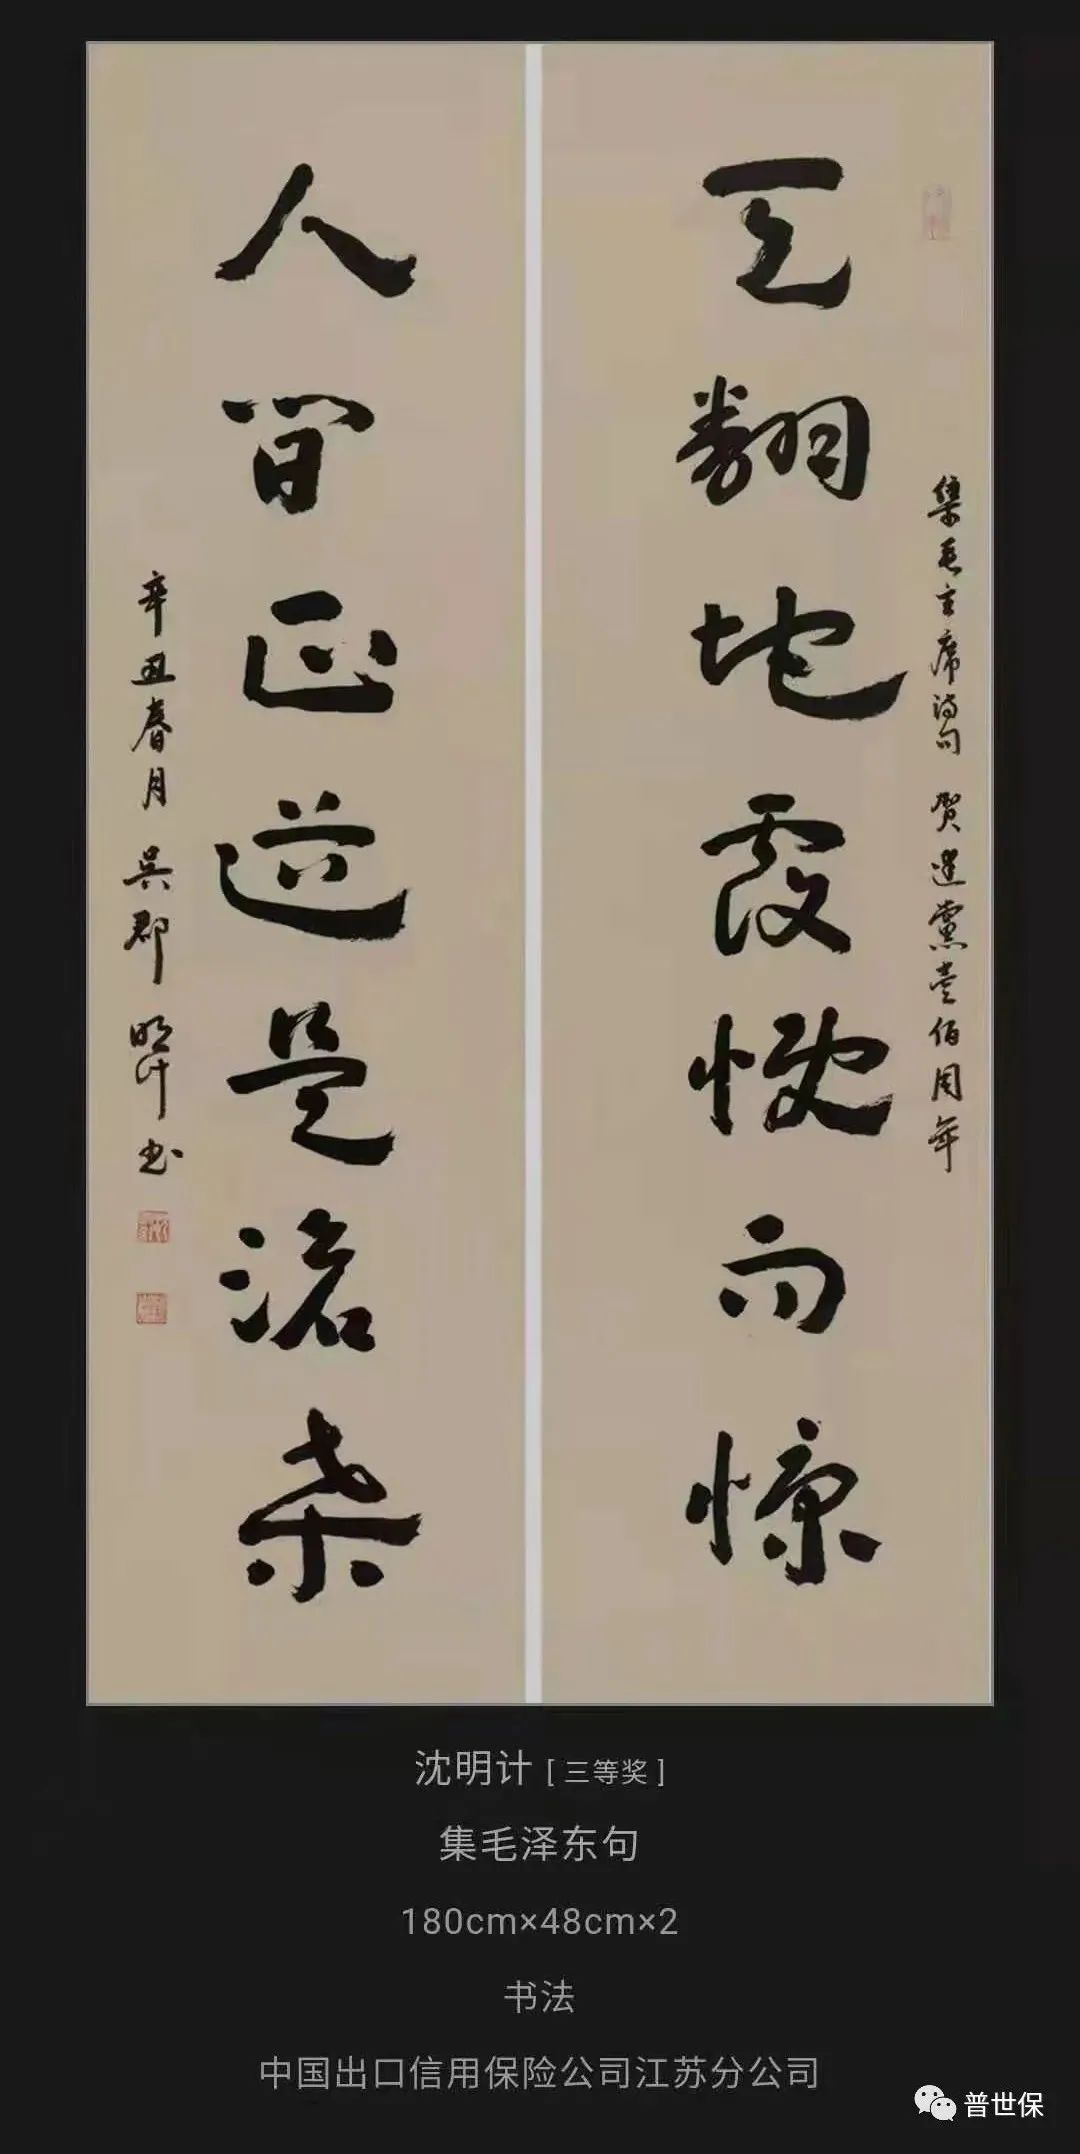 集毛主席詩句 賀建黨壹佰周年
天翻地覆慨而慷
人間正道是滄桑
辛丑春月 吳郡 明计书
沈明计 [ 三等奖 ]
集毛泽东句
180cm×48cm×2
书法
中国出口信用保险公司江苏分公司
普世保